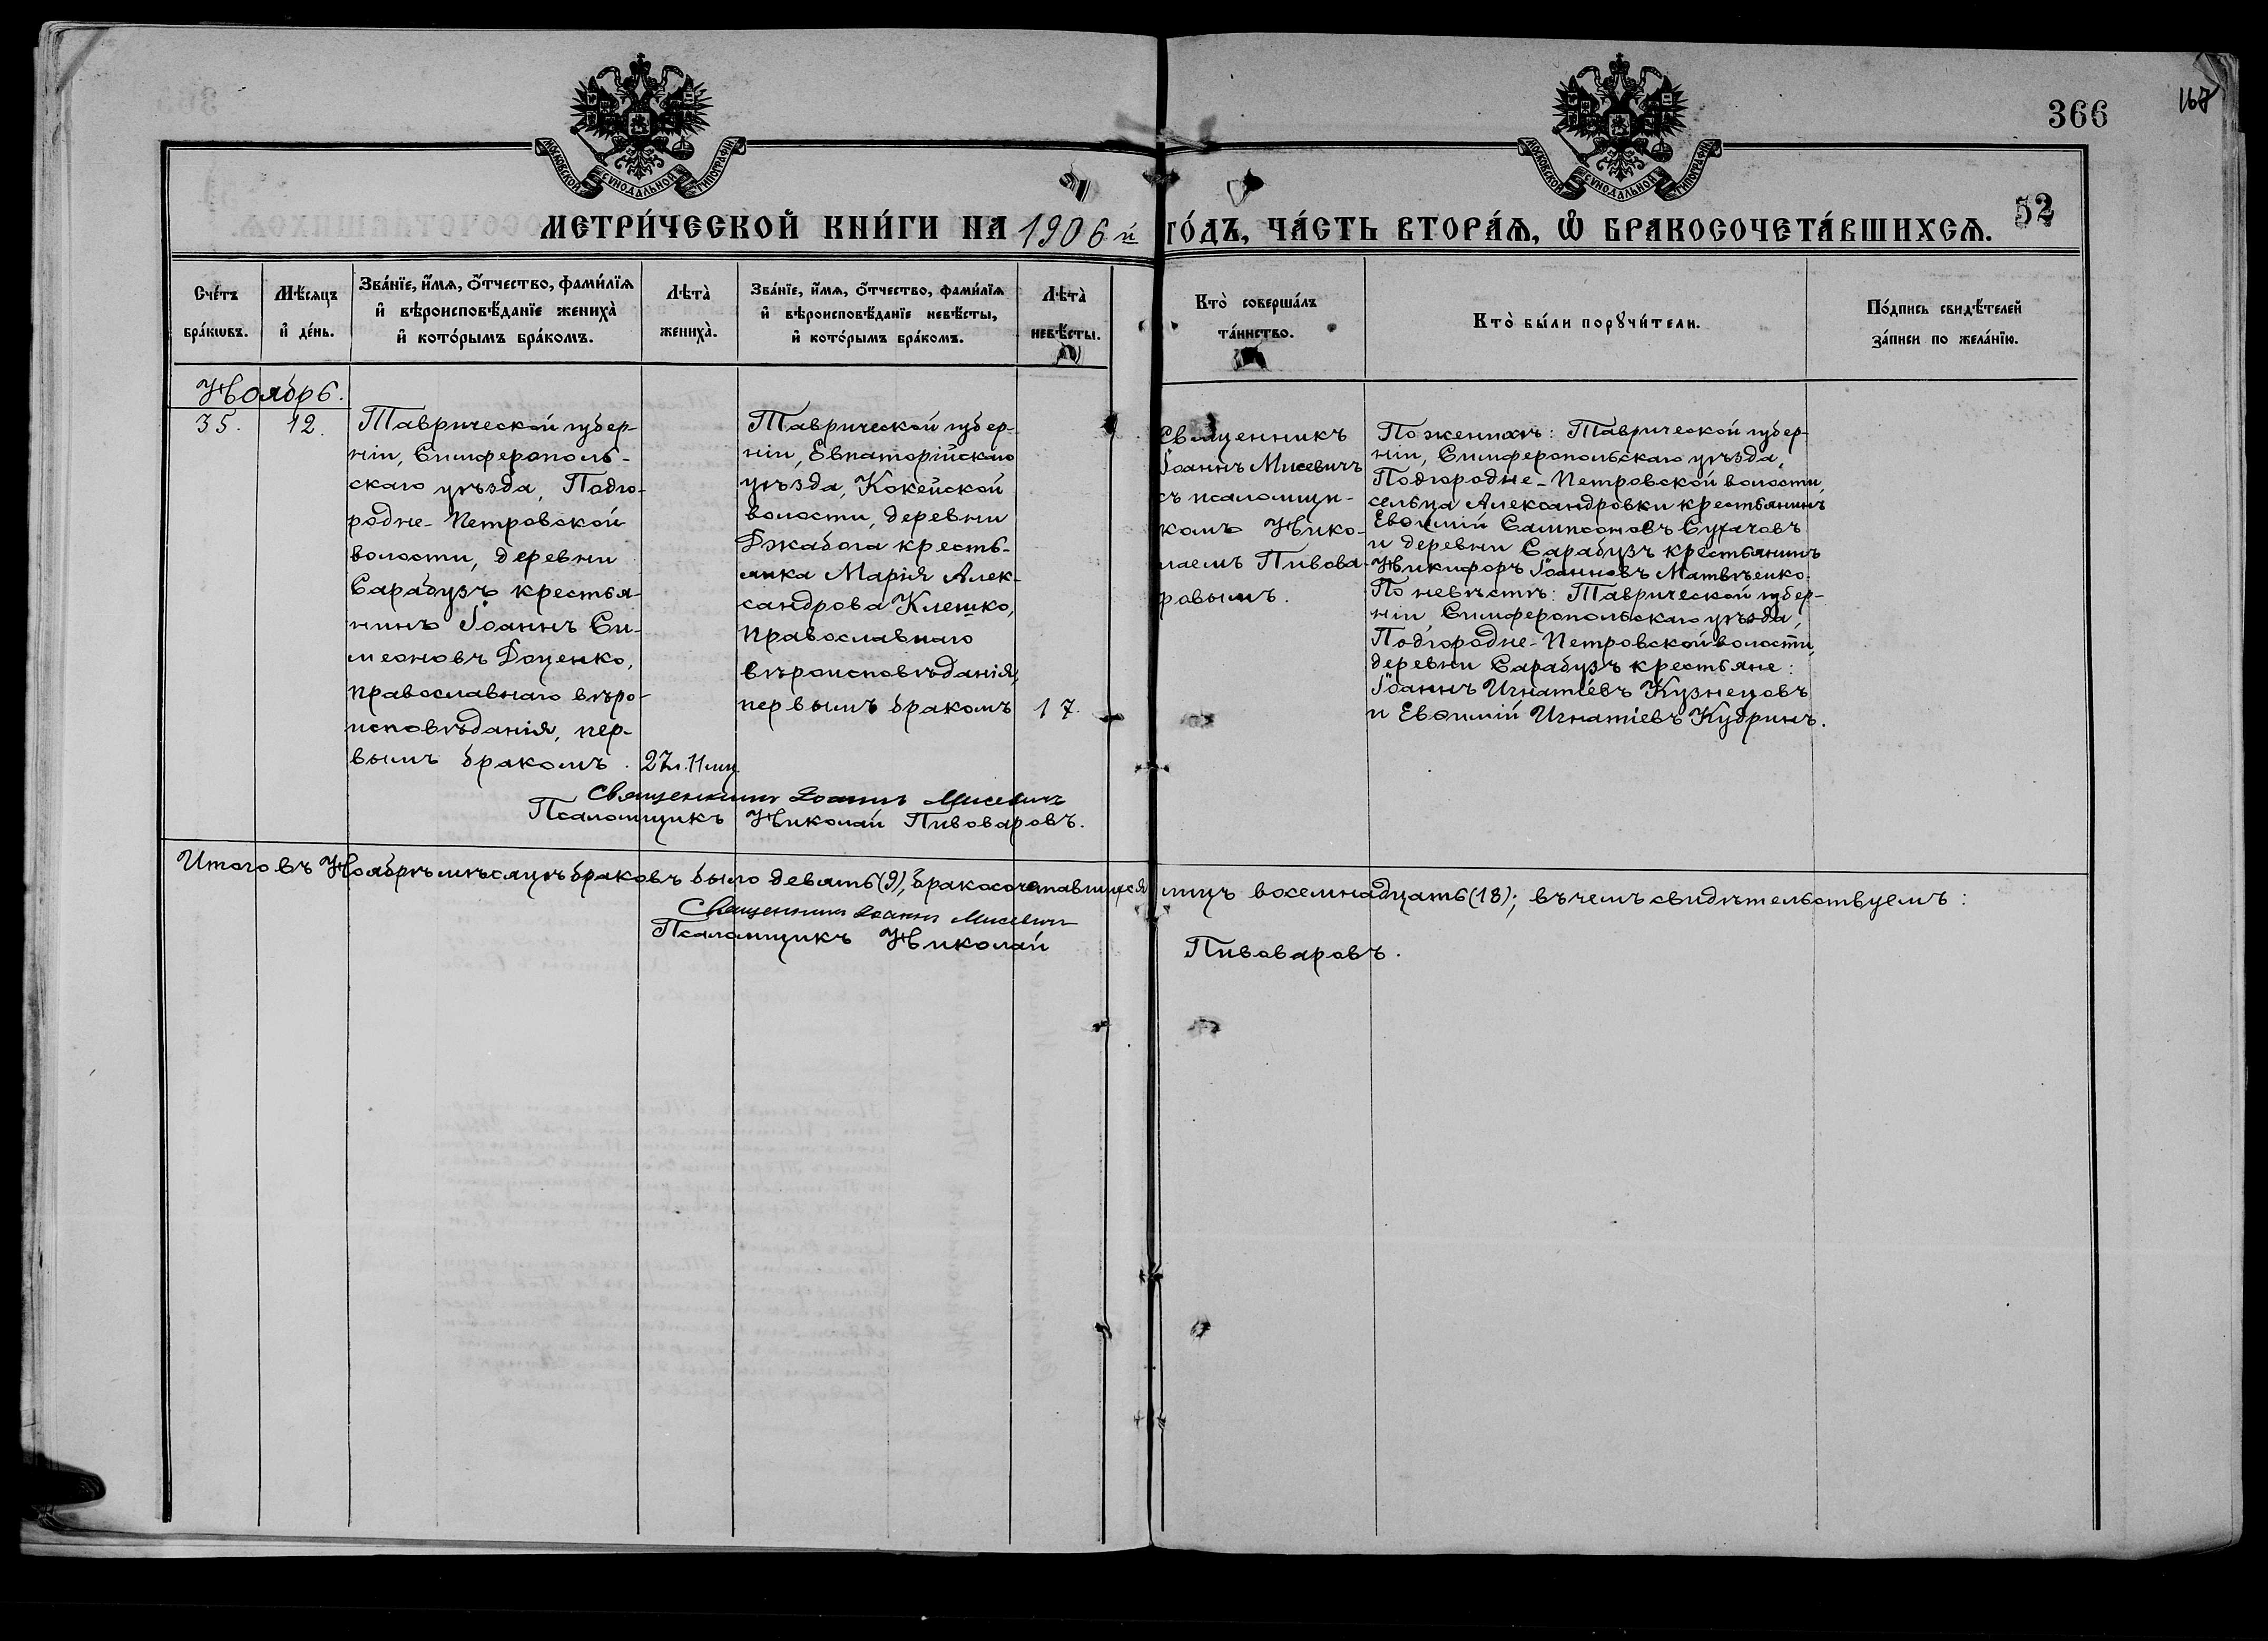 366
167
МОСКОВСКОЙ СѴНОДАЛЬНОЙ ТИПОГРАФІИ
МОСКОВСКОЙ СѴНОДАЛЬНОЙ ТИПОГРАФІИ
52
МЕТРИ́ЧЕСКОЙ КНИ́ГИ НА 1906й ГО́ДЪ, ЧА́СТЬ ВТОРА́Ѧ, Ѽ БРАКОСОЧЕТА́ВШИХСѦ.
Счéтъ
брáкѡвъ.
Мѣ́сяцъ
и҆ дéнь.
Звáнїе, и҆́мѧ, ѻ҆́тчество, фамѝлїѧ
и҆ вѣроисповѣ́данїе женихà
и҆ котóрымъ брáкомъ.
Лѣтà
женихà.
Звáнїе, и҆́мѧ, ѻ҆́тчество, фамѝлїѧ
и҆ вѣроисповѣ́данїе невѣ́сты,
и҆ котóрымъ брáкомъ.
Лѣтà
невѣ́сты.
Ктò совершáлъ
тáинство.
Ктò бы́ли порꙋчи́тели.
Пóдпись свидѣ́телей
зáписи по желáнїю.
Ноябрь.
35.
12.
Таврической губер-
ніи, Симферополь-
скаго уѣзда, Подго-
родне-Петровской
волости, деревни
Сарабузъ крестья-
нинъ Іоаннъ Си-
меоновъ Доценко,
православнаго вѣро-
исповѣданія, пер-
вымъ бракомъ.
27л. 11мц.
Таврической губер-
ніи, Евпаторійскаго
уѣзда, Кокейской
волости, деревни
Джабога кресть-
янка Марія Алек-
сандрова Клешко,
православнаго
вѣроисповѣданія,
первымъ бракомъ
17.
Священникъ
Іоаннъ Мисевичъ
съ псаломщи-
комъ Нико-
лаемъ Пивова-
ровымъ.
По женихѣ: Таврической губер-
ніи, Симферопольскаго уѣзда,
Подгородне-Петровской волости,
сельца Александровки крестьянинъ
Евѳимій Сампсоновъ Сухачовъ
и деревни Сарабузъ крестьянинъ
Никифоръ Іоанновъ Матвѣенко.
По невѣстѣ: Таврической губер-
ніи, Симферопольскаго уѣзда,
Подгородне-Петровской волости,
деревни Сарабузъ крестьяне:
Іоаннъ Игнатіевъ Кузнецовъ
и Евѳимій Игнатіевъ Кудринъ.
Священникъ Іоаннъ Мисевичъ
Псаломщикъ Николай Пивоваровъ.
Итого въ Ноябрѣ мѣсяцѣ браковъ было девять (9), бракосочетавшихся лицъ восемнадцать (18); въ чемъ свидѣтельствуемъ:
Священникъ Іоаннъ Мисевичъ
Псаломщикъ Николай Пивоваровъ.